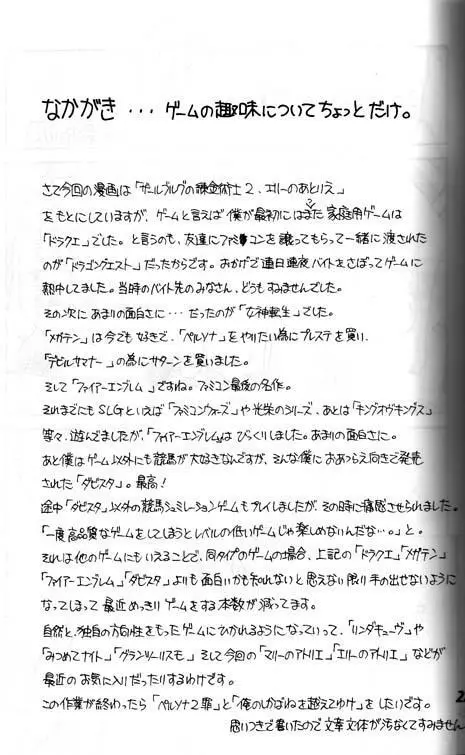 なかがき・・・ゲームの趣味についてちょっとだけ。
さて今回の漫画は「ザールブルグの錬金術士2、エリーのあとりえ」
をもとにしていますが、ゲームと言えば僕が最初にはまった家庭用ゲームは
「ドラクエ」でした。と言うのも、友達にファミコンを譲ってもらって一緒に渡された
のが「ドラゴンクエスト」だったからです。おかげで連日連夜バイトをさぼってゲームに
熱中してました。当時のバイト先のみなさん、どうもすみませんでした。
その次にあまりの面白さに・・・だったのが「女神転生」でした。
「メガテン」は今でも好きで、「ペルソナ」をやりたい為にプレステを買い、
「デビルサマナー」の為にサターンを買いました。
そして「ファイアーエンブレム」ですね。ファミコン最後の名作。
それまでにもSLGといえば「ファミコンウォーズ」や光栄のシリーズ、あとは「キングオブキングス」
等々、遊んでましたが、「ファイアーエンブレム」はびっくりしました。あまりの面白さに。
あと僕はゲーム以外にも競馬が大好きなんですが、そんな僕におあつらえ向きで発売
された「ダビスタ」。最高!
途中「ダビスタ」以外の競馬シュミレーションゲームもプレイしましたが、その時に痛感させられました。
「一度高品質なゲームをしてしまうとレベルの低いゲームじゃ楽しめないんだな…。」と。
それは他のゲームにもいえることで、同タイプのゲームの場合、上記の「ドラクエ」「メガテン」
「ファイアーエンブレム」「ダビスタ」よりも面白いかも知れないと思えない限り手の出せないように
なってしまって最近めっきりゲームをする本数が減ってます。
自然と、独自の方向性をもったゲームにひかれるようになっていって、「リンダキューブ」や
「みつめてナイト」「グランツーリスモ」そして今回の「マリーのアトリエ」「エリーのアトリエ」などが
最近のお気に入りだったりするわけです。
この作業が終わったら「ペルソナ2罪」と「俺のしかばねを越えてゆけ」をしたいです。
思いつきで書いたので文章文体が汚なくてすみません
2